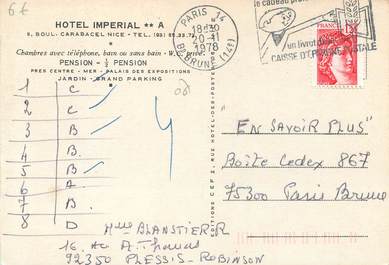 6€
HOTEL IMPERIAL ★★ A
8, BOUL. CARABACEL NICE - TEL.
Chambres avec téléphone, bain ou sans bain - W.C. privé.
PENSION - ½ PENSION
PRES CENTRE - MER - PALAIS DES EXPOSITIONS
JARDIN - GRAND PARKING
PARIS
18H30
20-11
1978
le cadeau
un livret
CAISSE D'EPARGNE POSTALE
1 C
2 C
3 B
4 B.
5 B
6 A
7 B.
8 D
"EN SAVOIR PLUS"
Boîte Cedex 867
75300 Paris Brune
Mlle BLANSTIERR
16
92350 PLESSIS-ROBINSON